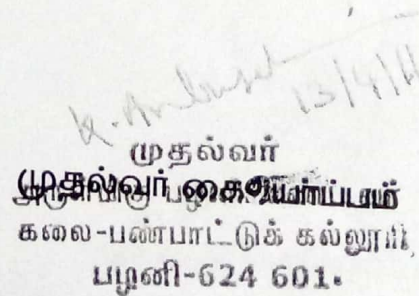 K.
13/4/11
முதல்வர்
முதல்வர் கையொப்பம்
கலை-பண்பாட்டுக் கல்லூரி,
பழனி-624 601.